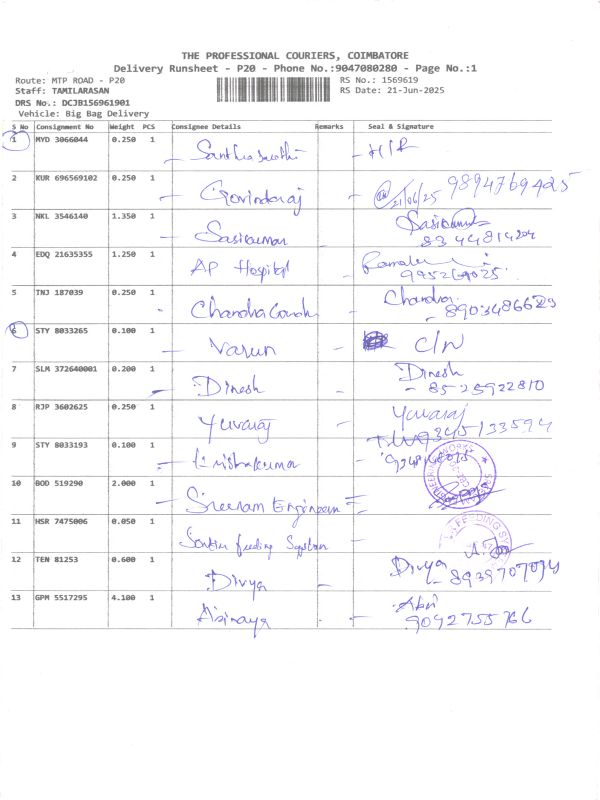 THE PROFESSIONAL COURIERS, COIMBATORE
Delivery Runsheet - P20 - Phone No.:9047080280 - Page No.:1
Route: MTP ROAD - P20 RS No.: 1569619
Staff: TAMILARASAN RS Date: 21-Jun-2025
DRS No.: DCJB156961901
Vehicle: Big Bag Delivery
S No Consignment No Weight PCS Consignee Details Remarks Seal & Signature
1 MYD 3066044 0.250 1
2 KUR 696569102 0.250 1 Govindaraj 21/06/25 9894769425
3 NKL 3546140 1.350 1 Sasikumar Sasikumar
8344814204
4 EDQ 21635355 1.250 1 AP Hospital
5 TNJ 187039 0.250 1 Chandra Gandhi Chandra
8903486629
6 STY 8033265 0.100 1 Varun C/N
7 SLM 372640001 0.200 1 Dinesh Dinesh
8525922810
8 RJP 3602625 0.250 1 Yuvaraj Yuvaraj
9345133594
9 STY 8033193 0.100 1
10 BOD 519290 2.000 1 Sreeram Engineers
11 HSR 7475006 0.050 1 feeding System
12 TEN 81253 0.600 1 Divya Divya
13 GPM 5517295 4.100 1 Abinaya Abi
9042755766